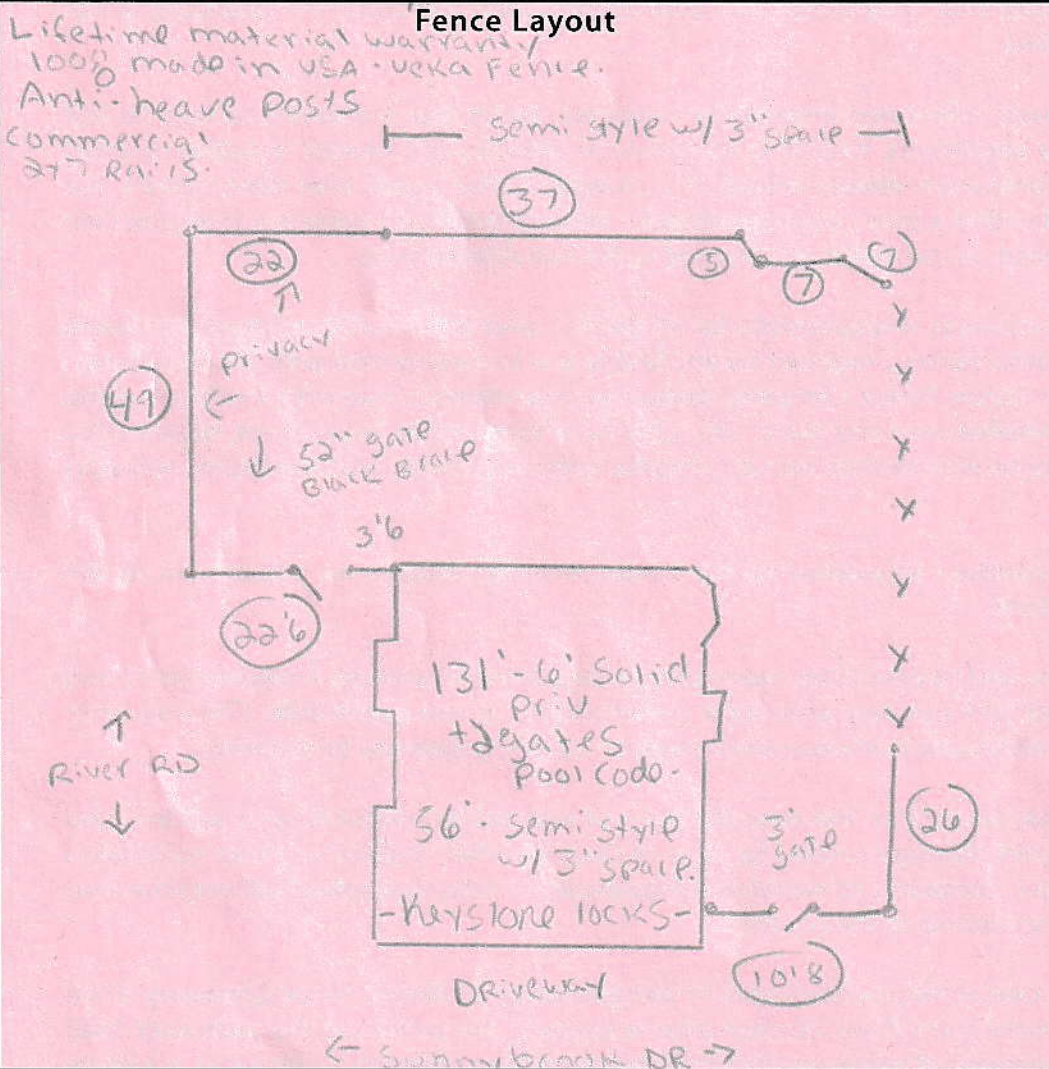 Fence Layout
Lifetime material warranty
100% made in USA - Veka Fence.
Anti-heave Posts
Commercial
2x7 Rails.
Semi style w/ 3" space
37
22
5
7
7
privacy
49
52" gate
Black Brace
3'6
22'6
131' - 6' Solid
priv
+2gates
pool code -
River RD
56' - semi style
w/ 3" space.
3'
gate
26
- Keystone locks -
10'8
Driveway
← Sunnybrook DR →